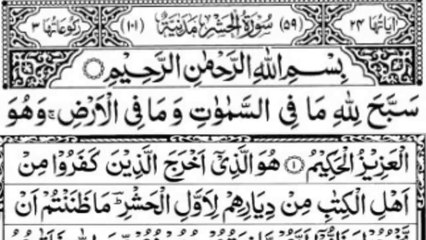 اٰیَاتُهَا ۲۴ (۵۹) سُوْرَةُ الْحَشْرِ مَدَنِيَّةٌ (۱۰۱) رُكُوْعَاتُهَا ۳
بِسْمِ اللّٰهِ الرَّحْمٰنِ الرَّحِيْمِ
سَبَّحَ لِلّٰهِ مَا فِي السَّمٰوٰتِ وَمَا فِي الْاَرْضِ ۚ وَهُوَ
الْعَزِيْزُ الْحَكِيْمُ ۝۱ هُوَ الَّذِيْۤ اَخْرَجَ الَّذِيْنَ كَفَرُوْا مِنْ
اَهْلِ الْكِتٰبِ مِنْ دِيَارِهِمْ لِاَوَّلِ الْحَشْرِ ؔ مَا ظَنَنْتُمْ اَنْ